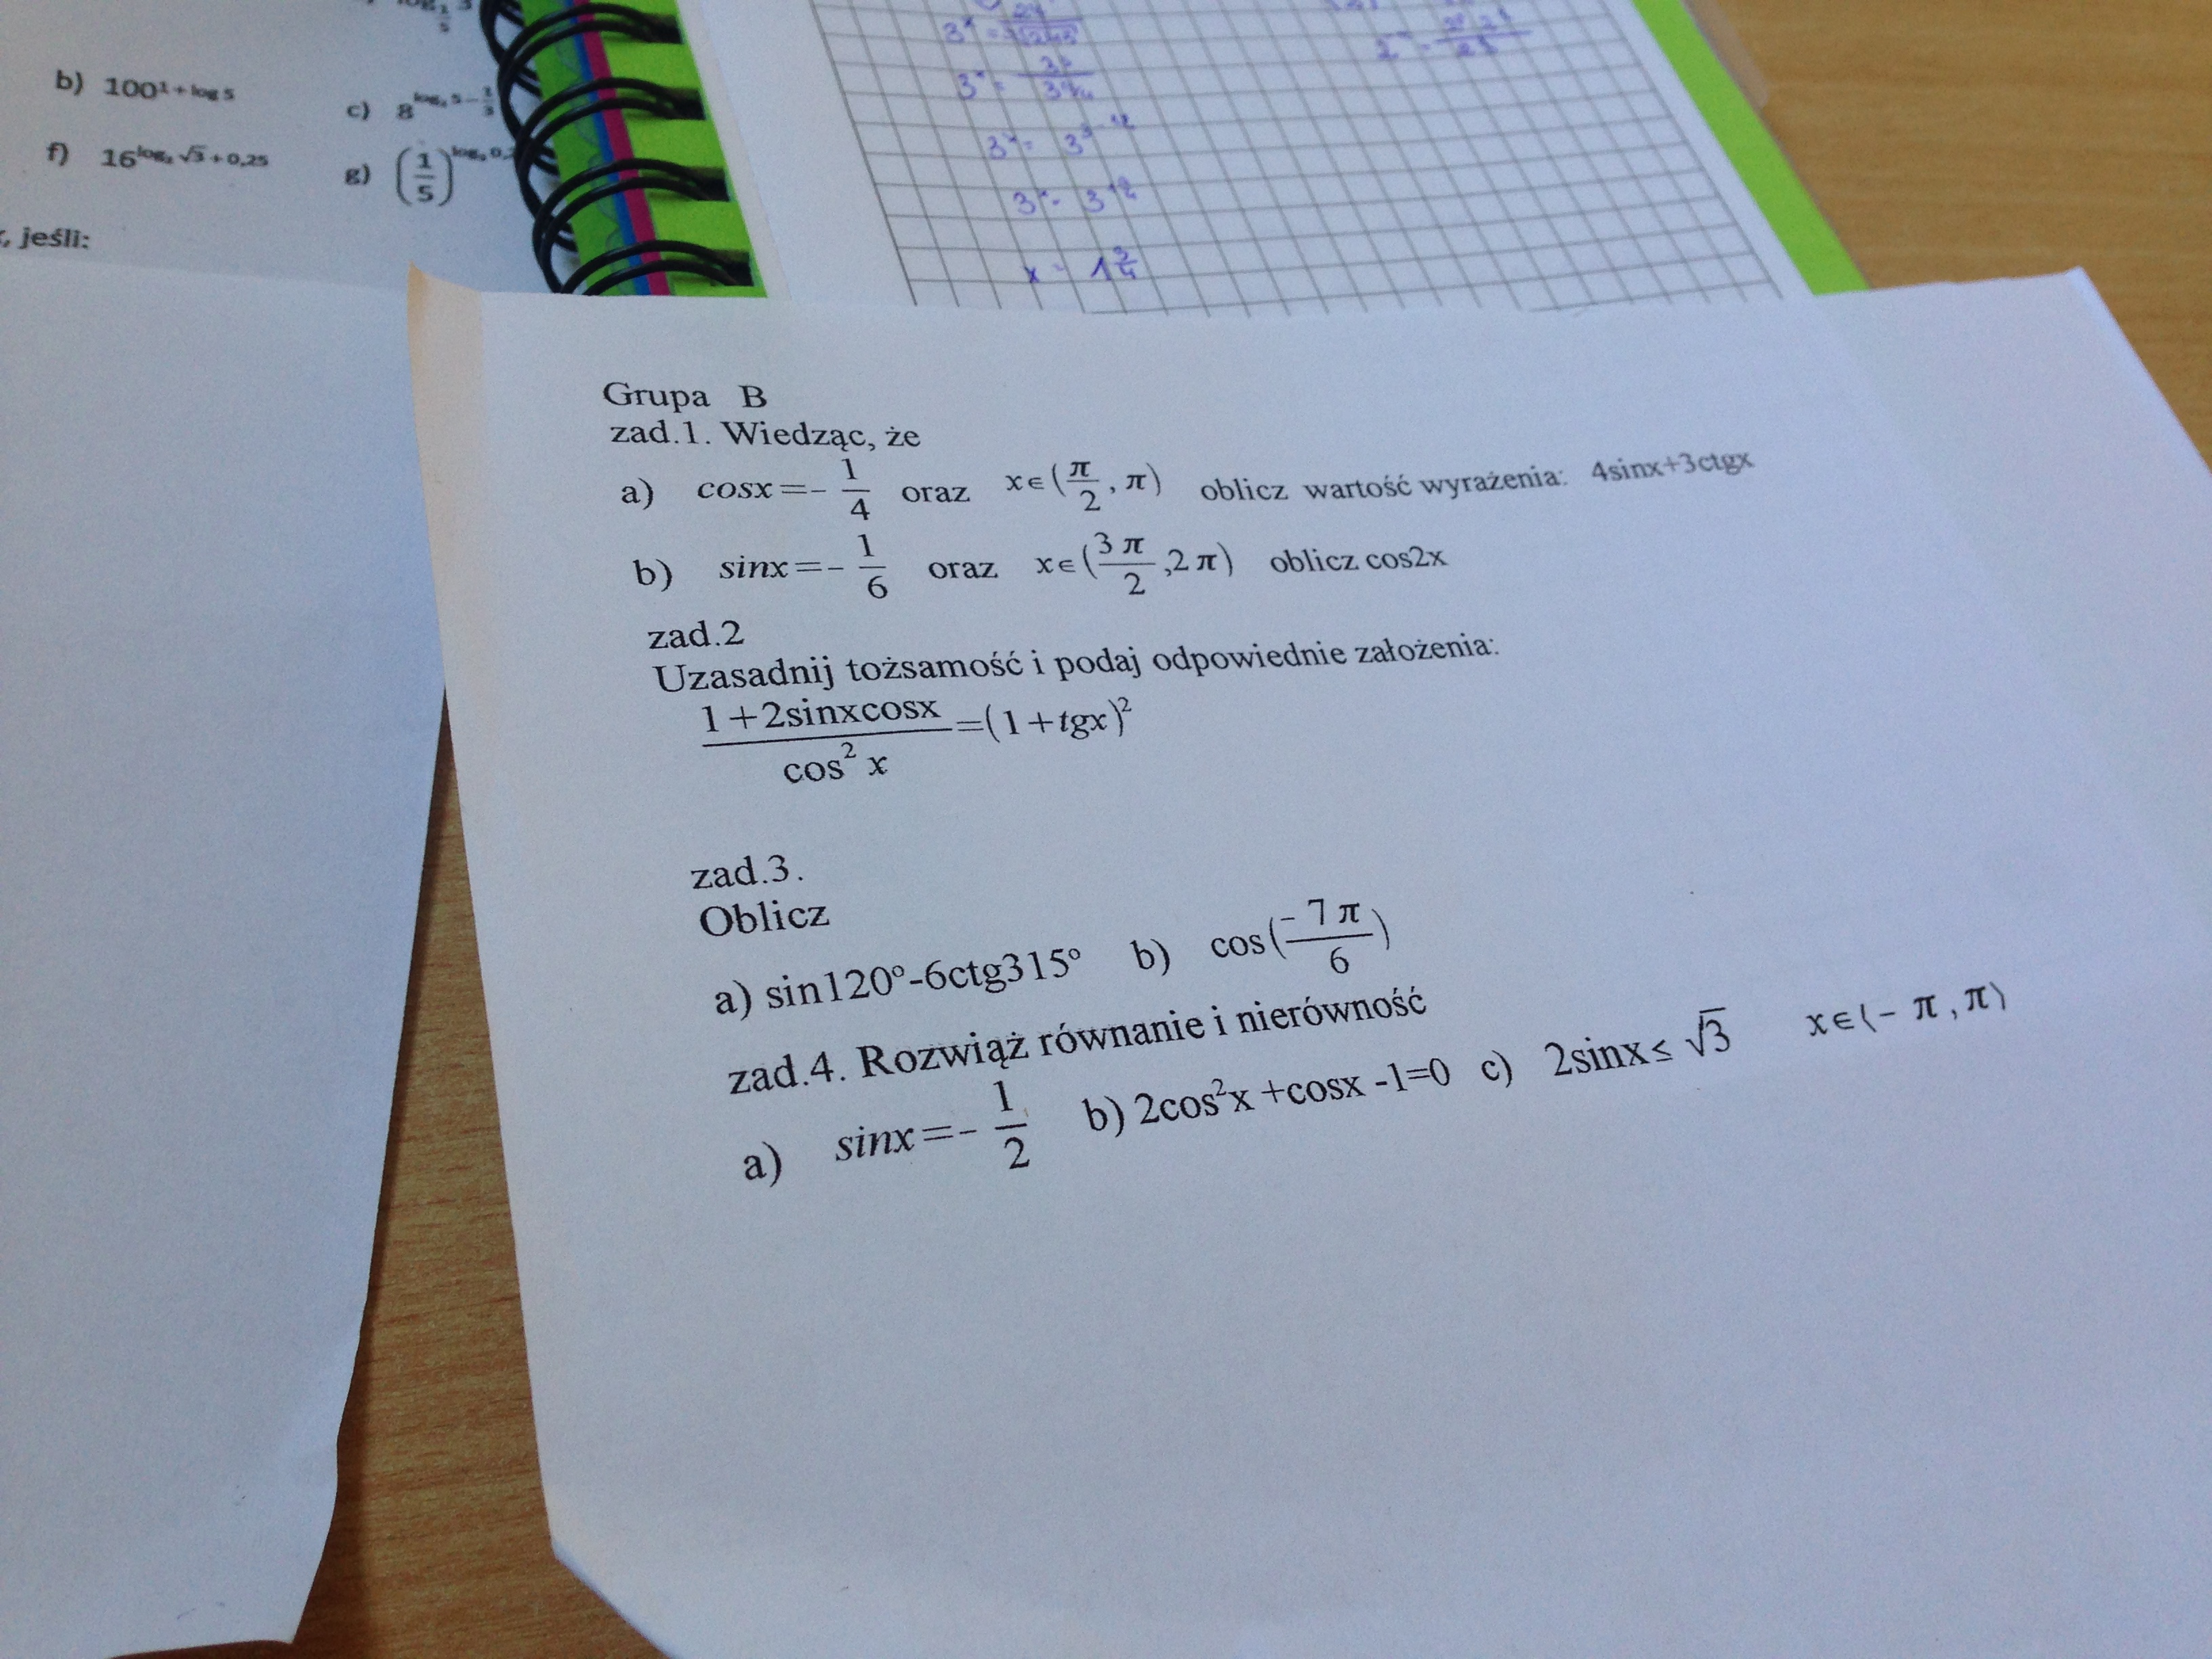 b) 100^{1 + log 5}
c) 8
f)
g) (1/5)
jeśli:
3^x =
3^x =
3^x =
3^x =
x = 1 3/4
Grupa B
zad.1. Wiedząc, że
a) cosx=- 1/4 oraz x∈(π/2, π) oblicz wartość wyrażenia: 4sinx+3ctgx
b) sinx=- 1/6 oraz x∈(3π/2,2π) oblicz cos2x
zad.2
Uzasadnij tożsamość i podaj odpowiednie założenia:
(1+2sinxcosx)/(cos² x)=(1+tgx)²
zad.3.
Oblicz
a) sin120°-6ctg315° b) cos(-7π/6)
zad.4. Rozwiąż równanie i nierówność
a) sinx=- 1/2 b) 2cos²x +cosx -1=0 c) 2sinx≤ √3 x∈⟨- π, π⟩